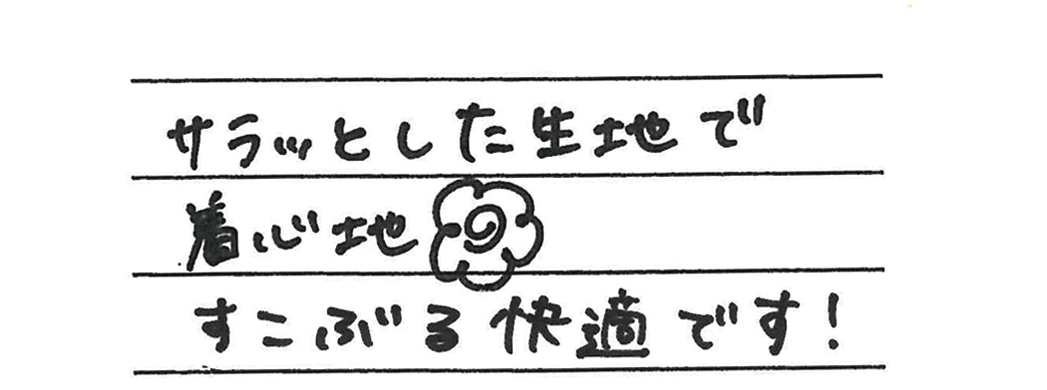 サラッとした生地で
着心地
すこぶる快適です!